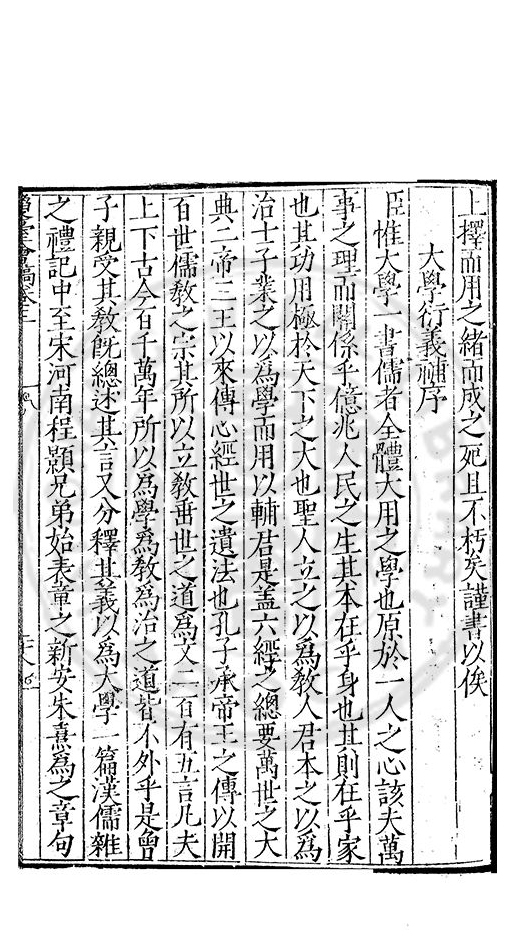 上擇而用之緒而成之死且不朽矣謹書以俟
大學衍義補序
臣惟大學一書儒者全體大用之學也原於一人之心該夫萬
事之理而關係乎億兆人民之生其本在乎身也其則在乎家
也其功用極於天下之大也聖人立之以為教人君本之以為
治士子業之以為學而用以輔君是盖六經之總要萬世之大
典二帝三王以來傳心經世之遺法也孔子承帝王之傳以開
百世儒教之宗其所以立教垂世之道為文二百有五言凡夫
上下古今百千萬年所以為學為教為治之道皆不外乎是曾
子親受其教既總述其言又分釋其義以為大學一篇漢儒雜
之禮記中至宋河南程顥兄弟始表章之新安朱熹為之章句